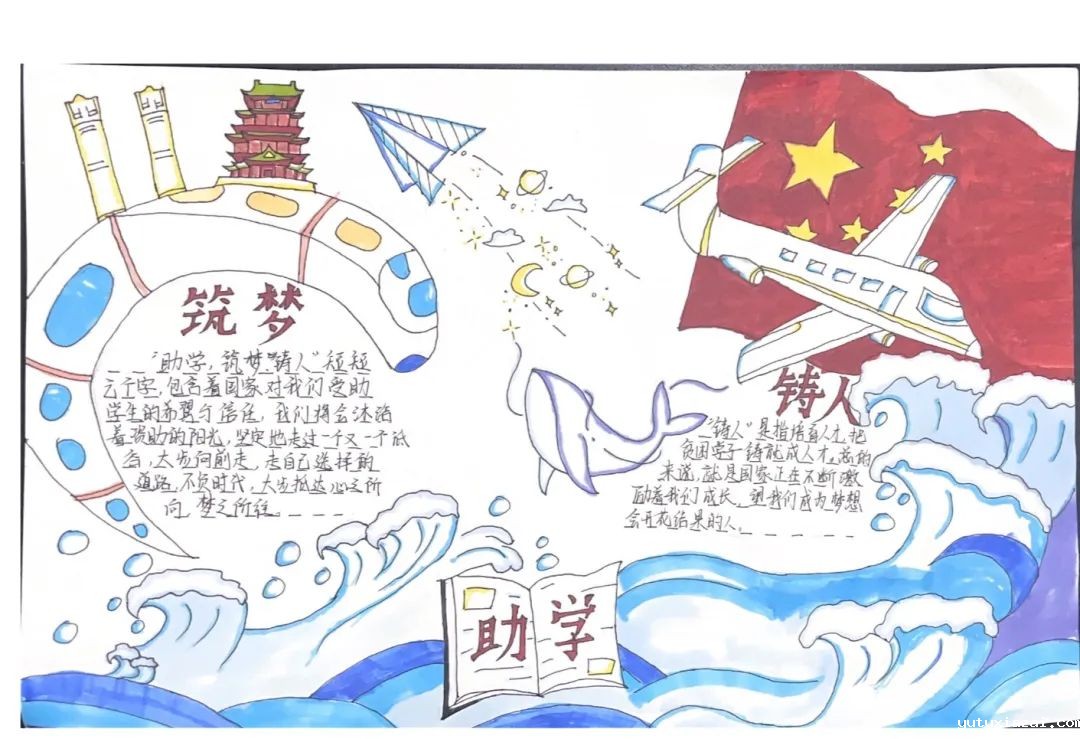 筑梦
“助学，筑梦“铸人”短短
六个字，包含着国家对我们受助
学生的希翼与信任，我们将会沐浴
着资助的阳光，坚定地走过一个又一个低
谷，大步向前走，走自己选择的
道路，不负时代，大步抵达心之所
向，梦之所往。
铸人
“铸人”是指培育人才，把
贫困学子铸就成人才。总的
来说，就是国家正在不断激
励着我们成长，望我们成为梦想
会开花结果的人。
助学
yutuxiazai.com